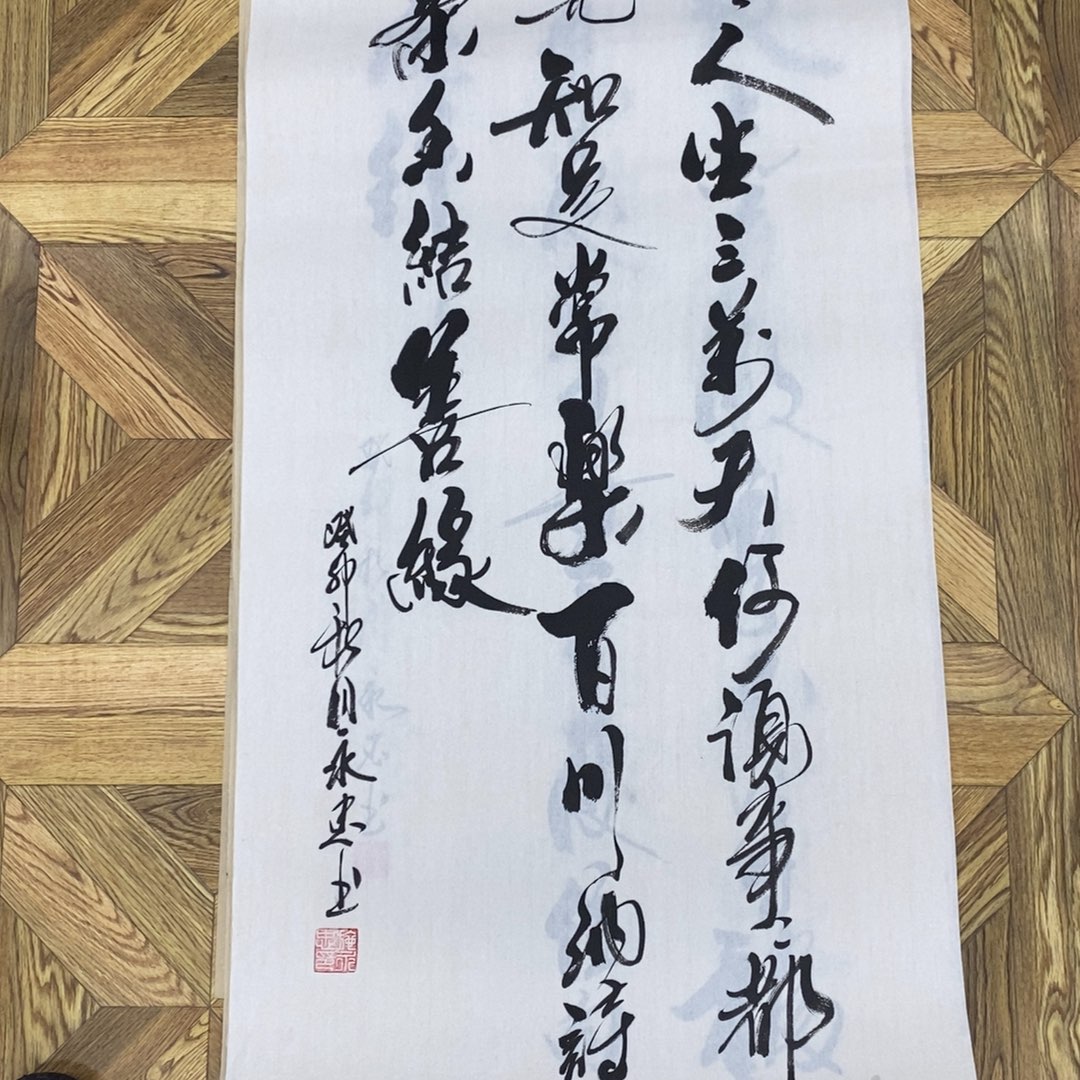 人生三萬天何須事々都
知足常樂百川納
結善緣
癸卯秋月永忠書